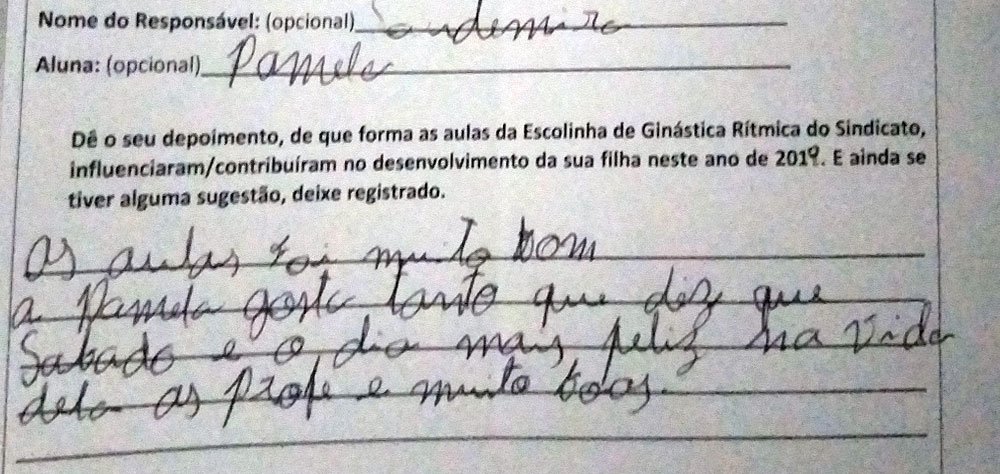 Nome do Responsável: (opcional) Saudemira
Aluna: (opcional) Pamela
Dê o seu depoimento, de que forma as aulas da Escolinha de Ginástica Rítmica do Sindicato,
influenciaram/contribuíram no desenvolvimento da sua filha neste ano de 2019. E ainda se
tiver alguma sugestão, deixe registrado.
As aulas foi muito bom
a Pamela gosta tanto que diz que
Sabado e o dia mais feliz na vida
dela as Profe e muito boas.